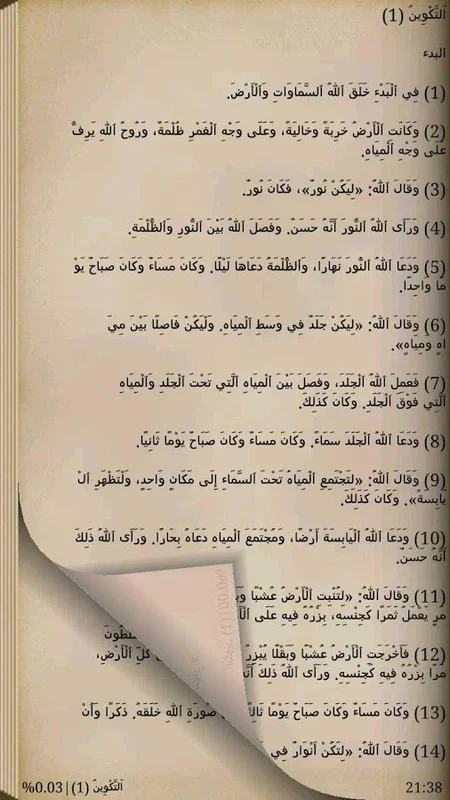 اَلتَّكْوِينُ (1)
البدء
(1) فِي ٱلْبَدْءِ خَلَقَ ٱللهُ ٱلسَّمَاوَاتِ وَٱلْأَرْضَ.
(2) وَكَانَتِ ٱلْأَرْضُ خَرِبَةً وَخَالِيَةً، وَعَلَى وَجْهِ ٱلْغَمْرِ ظُلْمَةٌ، وَرُوحُ ٱللهِ يَرِفُّ
عَلَى وَجْهِ ٱلْمِيَاهِ.
(3) وَقَالَ ٱللهُ: «لِيَكُنْ نُورٌ»، فَكَانَ نُورٌ.
(4) وَرَأَى ٱللهُ ٱلنُّورَ أَنَّهُ حَسَنٌ. وَفَصَلَ ٱللهُ بَيْنَ ٱلنُّورِ وَٱلظُّلْمَةِ.
(5) وَدَعَا ٱللهُ ٱلنُّورَ نَهَارًا، وَٱلظُّلْمَةُ دَعَاهَا لَيْلًا. وَكَانَ مَسَاءٌ وَكَانَ صَبَاحٌ يَوْ
مًا وَاحِدًا.
(6) وَقَالَ ٱللهُ: «لِيَكُنْ جَلَدٌ فِي وَسَطِ ٱلْمِيَاهِ. وَلْيَكُنْ فَاصِلًا بَيْنَ مِيَ
اهٍ وَمِيَاهٍ».
(7) فَعَمِلَ ٱللهُ ٱلْجَلَدَ، وَفَصَلَ بَيْنَ ٱلْمِيَاهِ ٱلَّتِي تَحْتَ ٱلْجَلَدِ وَٱلْمِيَاهِ
ٱلَّتِي فَوْقَ ٱلْجَلَدِ. وَكَانَ كَذَلِكَ.
(8) وَدَعَا ٱللهُ ٱلْجَلَدَ سَمَاءً. وَكَانَ مَسَاءٌ وَكَانَ صَبَاحٌ يَوْمًا ثَانِيًا.
(9) وَقَالَ ٱللهُ: «لِتَجْتَمِعِ ٱلْمِيَاهُ تَحْتَ ٱلسَّمَاءِ إِلَى مَكَانٍ وَاحِدٍ، وَلْتَظْهَرِ ٱلْ
يَابِسَةُ». وَكَانَ كَذَلِكَ.
(10) وَدَعَا ٱللهُ ٱلْيَابِسَةَ أَرْضًا، وَمُجْتَمَعَ ٱلْمِيَاهِ دَعَاهُ بِحَارًا. وَرَأَى ٱللهُ ذَلِكَ
أَنَّهُ حَسَنٌ.
(11) وَقَالَ ٱللهُ: «لِتُنْبِتِ ٱلْأَرْضُ عُشْبًا
يَعْمَلُ ثَمَرًا كَجِنْسِهِ، بِزْرُهُ فِيهِ عَلَى
(12) فَأَخْرَجَتِ ٱلْأَرْضُ عُشْبًا وَبَقْلًا يُبْزِرُ كُلِّ ٱلْأَرْضِ،
مَرًا بِزْرُهُ فِيهِ كَجِنْسِهِ. وَرَأَى ٱللهُ ذَلِكَ
(13) وَكَانَ مَسَاءٌ وَكَانَ صَبَاحٌ يَوْمًا صُورَةِ ٱللهِ خَلَقَهُ. ذَكَرًا وَأُنْ
(14) وَقَالَ ٱللهُ: «لِتَكُنْ أَنْوَارٌ فِي
21:38
اَلتَّكْوِينُ (1) | %0.03